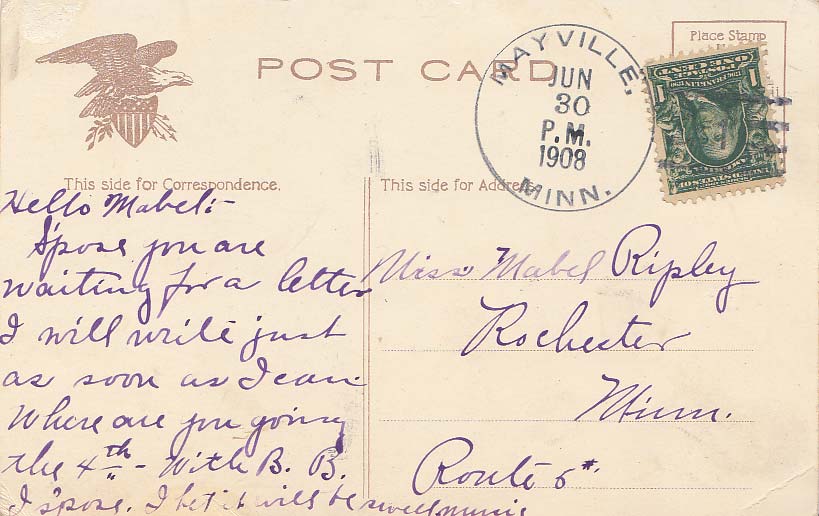 POST CARD
Place Stamp
MAYVILLE.
JUN
30
P.M.
1908
MINN.
ONE CENT
1 1
This side for Correspondence.
Hello Mabel:-
S'pose you are
waiting for a letter
I will write just
as soon as I can.
Where are you going
the 4th - With B. B.
I s'pose. I bet it will be sweet music
This side for Address
Miss Mabel Ripley
Rochester
Minn.
Route 5*.